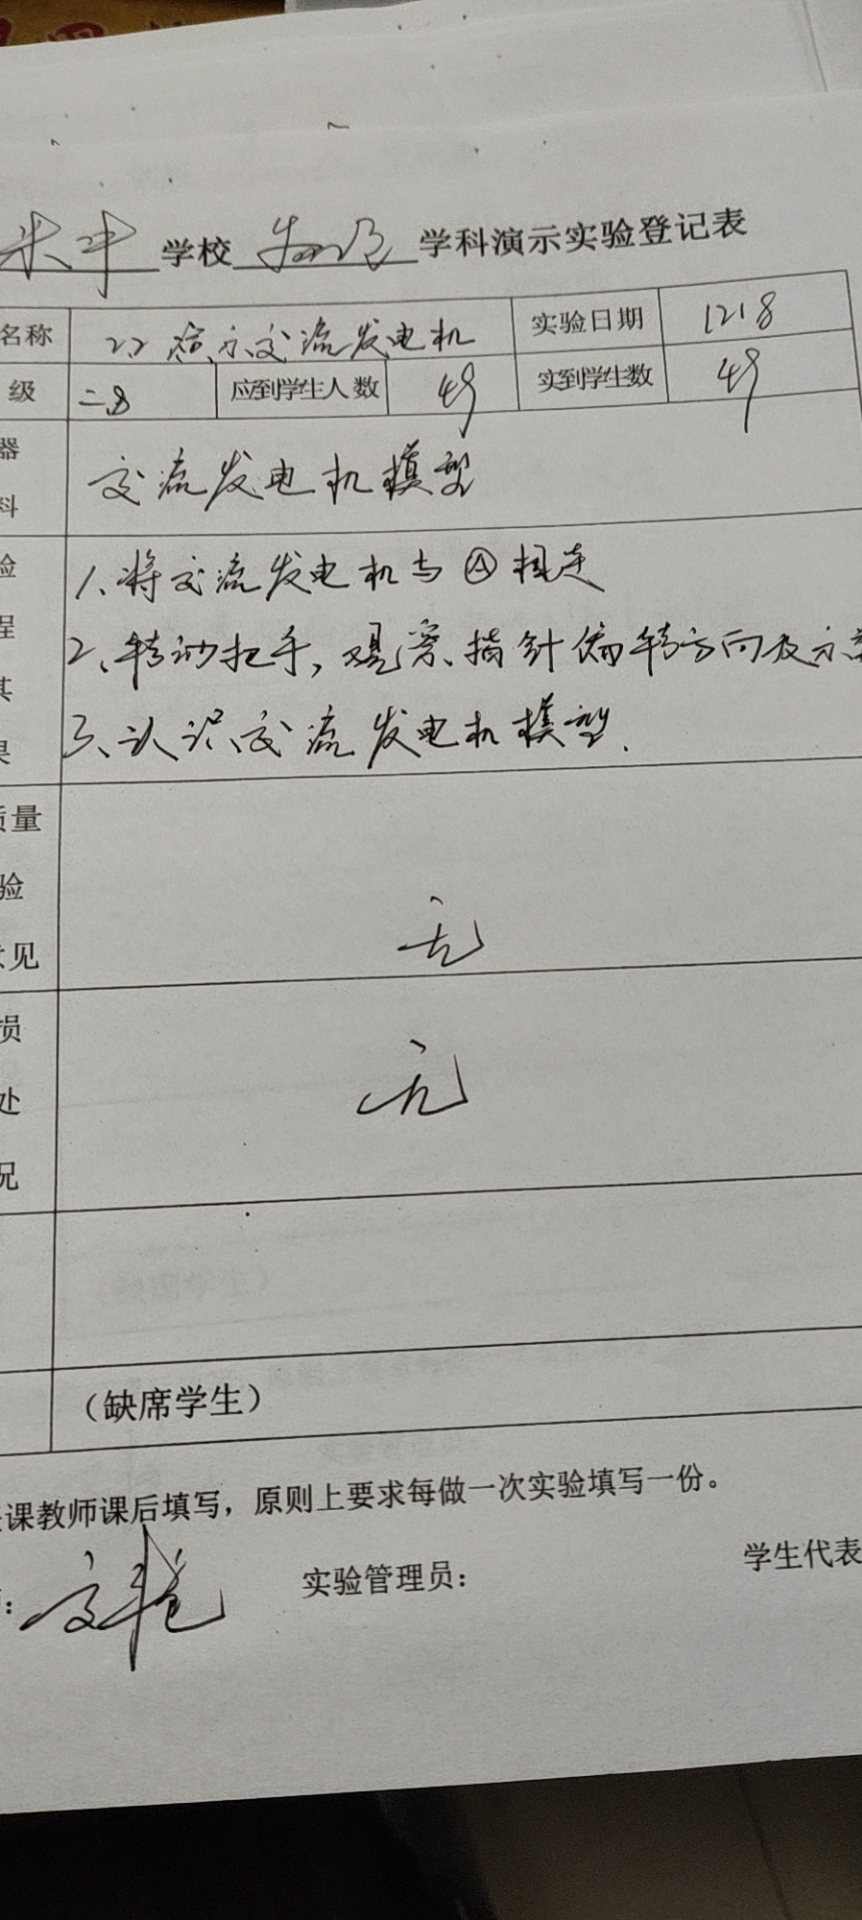 米中 学校 物理 学科演示实验登记表
名称 22 演示交流发电机 实验日期 1218
级 二.8 应到学生人数 49 实到学生数 49
器
料 交流发电机模型
验 1、将交流发电机与Ⓐ相连
程 2、转动把手,观察、指针偏转方向及示
其
果 3、认识交流发电机模型.
质量
验
意见 无
损
处 无
况
(缺席学生)
课教师课后填写,原则上要求每做一次实验填写一份。
: 实验管理员: 学生代表